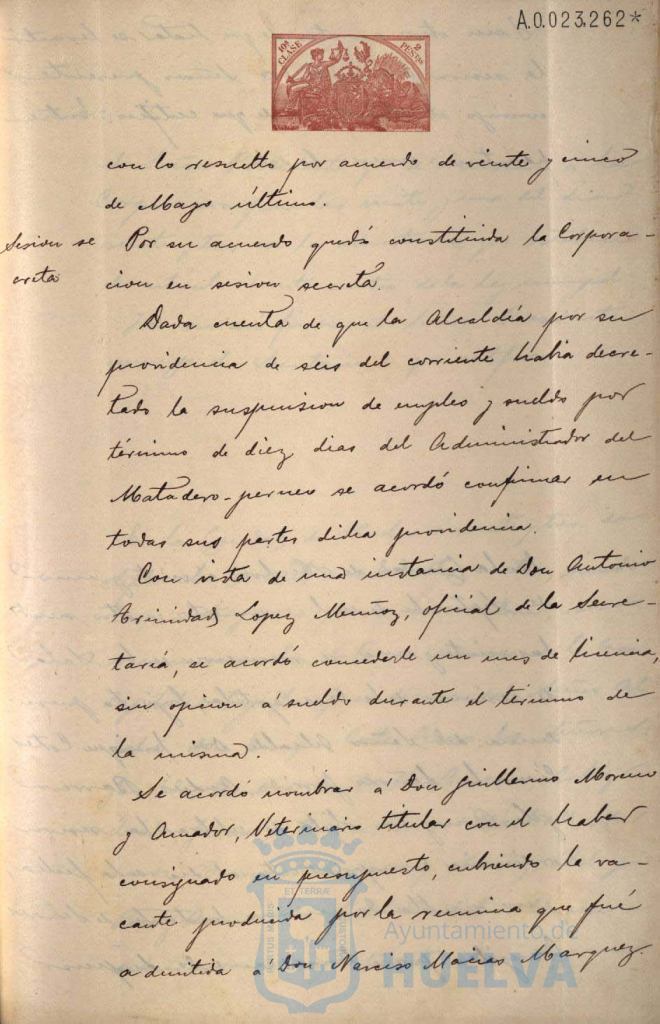 A.0.023.262*
10ª CLASE
2 PESETAS
con lo resuelto por acuerdo de veinte y cinco
de Mayo último.
Sesion se
creta
Por su acuerdo quedó constituida la Corpora-
cion en sesion secreta.
Dada cuenta de que la Alcaldía por su
providencia de seis del corriente habia decre-
tado la suspension de empleo y sueldo por
término de diez dias del Administrador del
Matadero-perneo se acordó confirmar en
todas sus partes dicha providencia.
Con vista de una instancia de Don Antonio
Trinidad Lopez Muñoz, oficial de la Secre-
taría, se acordó concederle un mes de licencia,
sin opcion á sueldo durante el término de
la misma.
Se acordó nombrar á Don Guillermo Moreno
y Amador, Veterinario titular con el haber
consignado en presupuesto, cubriendo la va-
cante producida por la renuncia que fué
admitida á Don Narciso Macias Marquez.
Ayuntamiento de
HUELVA
ET TERRÆ
PORTUS MARIS
CUSTODIA